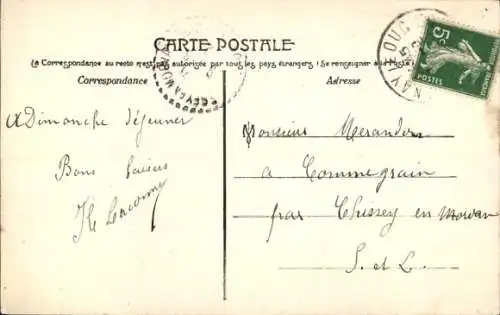 CARTE POSTALE
(La Correspondance au recto n'est pas autorisée par tous les pays étrangers (Se renseigner à la Poste)
Correspondance
Adresse
5
POSTES
à Dimanche déjeuner
Bons baisers
Monsieur
à Commegrain
par Chissey en Morvan
S. et L.